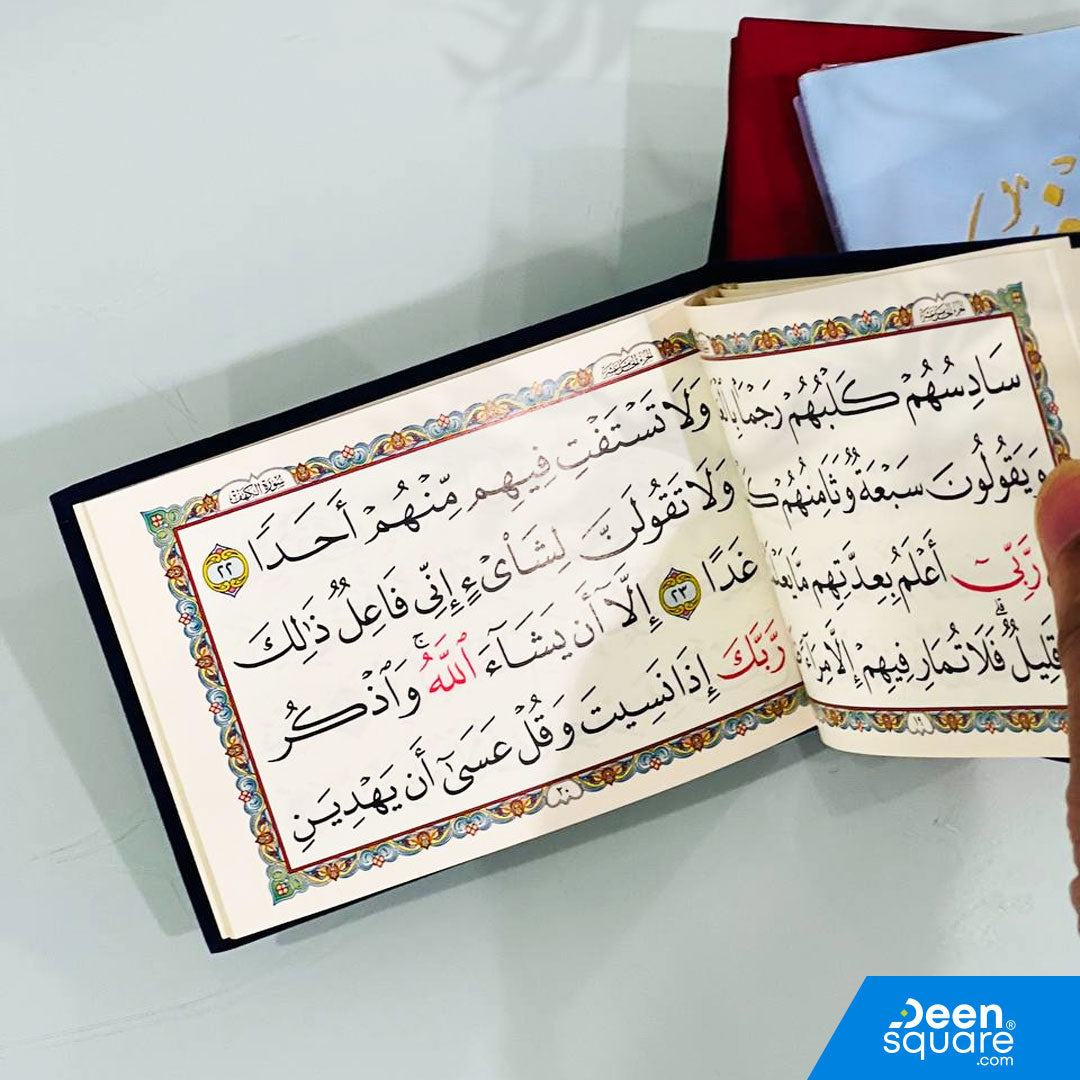 الجزء الخامس عشر
سَادِسُهُمْ كَلْبُهُمْ رَجْمًۢا
وَيَقُولُونَ سَبْعَةٌ وَثَامِنُهُمْ
رَّبِّىٓ أَعْلَمُ بِعِدَّتِهِم مَّا
قَلِيلٌ ۗ فَلَا تُمَارِ فِيهِمْ إِلَّا مِرَآءً
١٩
الجزء الخامس عشر
سورة الكهف
وَلَا تَسْتَفْتِ فِيهِم مِّنْهُمْ أَحَدًا ٢٢
وَلَا تَقُولَنَّ لِشَا۟ىْءٍ إِنِّى فَاعِلٌ ذَٰلِكَ
غَدًا ٢٣ إِلَّآ أَن يَشَآءَ ٱللَّهُ ۚ وَٱذْكُر
رَّبَّكَ إِذَا نَسِيتَ وَقُلْ عَسَىٰٓ أَن يَهْدِيَنِ
٢٠
Deen®
square
.com